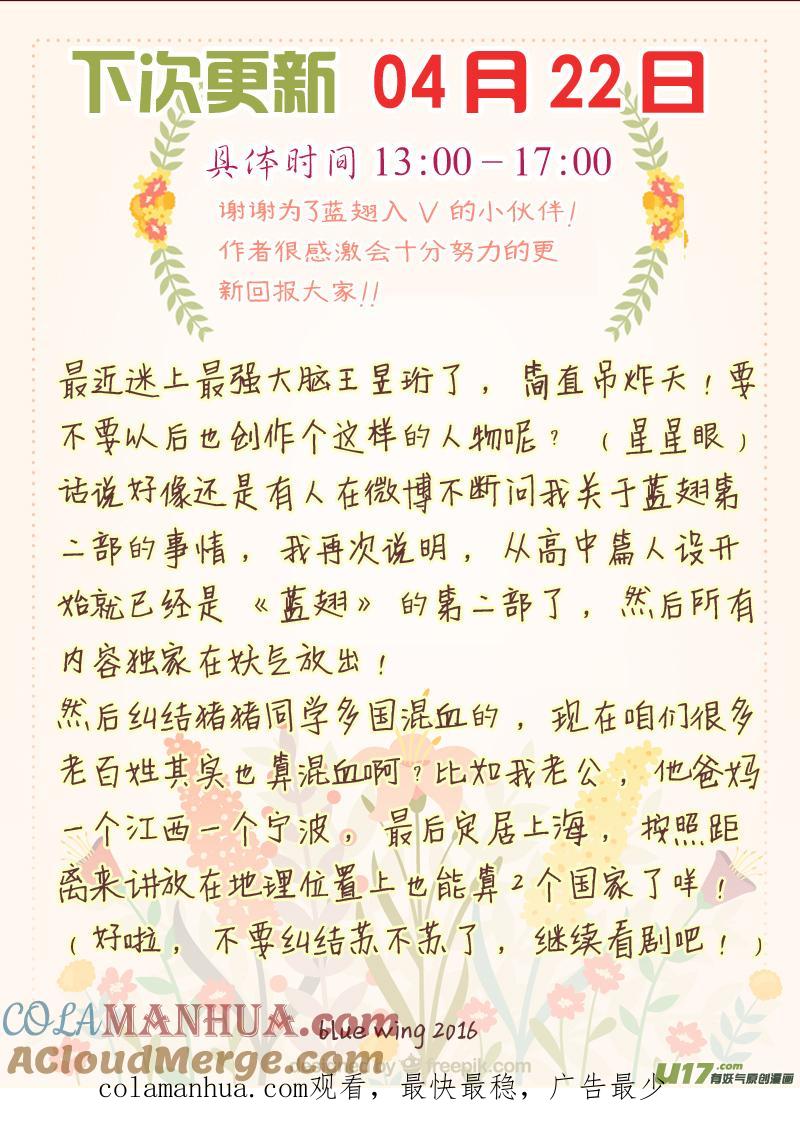 下次更新 04月22日
具体时间 13:00-17:00
谢谢为了蓝翅入V的小伙伴!
作者很感激会十分努力的更
新回报大家!!
最近迷上最强大脑王昱珩了，简直吊炸天!要
不要以后也创作个这样的人物呢?（星星眼）
话说好像还是有人在微博不断问我关于蓝翅第
二部的事情，我再次说明，从高中篇人设开
始就已经是《蓝翅》的第二部了，然后所有
内容独家在妖气放出!
然后纠结猪猪同学多国混血的，现在咱们很多
老百姓其实也算混血啊?比如我老公，他爸妈
一个江西一个宁波，最后定居上海，按照距
离来讲放在地理位置上也能算2个国家了咩!
（好啦，不要纠结苏不苏了，继续看剧吧!）
COLAMANHUA.com
blue wing 2016
ACloudMerge.com
designed by freepik.com
U17.com
有妖气原创漫画
colamanhua.com观看，最快最稳，广告最少